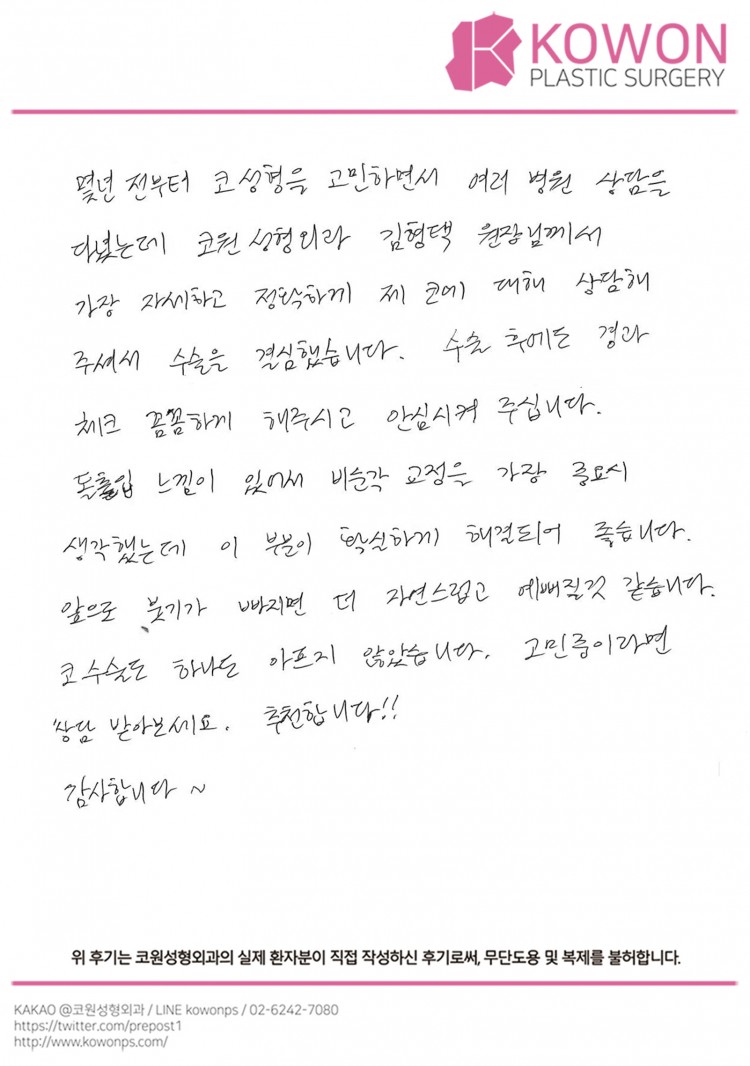 KOWON
PLASTIC SURGERY
몇년 전부터 코 성형을 고민하면서 여러 병원 상담을
다녔는데 코원 성형외과 김형택 원장님께서
가장 자세하고 정확하게 제 코에 대해 상담해
주셔서 수술을 결심했습니다. 수술 후에도 경과
체크 꼼꼼하게 해주시고 안심시켜 주십니다.
돌출입 느낌이 있어서 비순각 교정을 가장 중요시
생각했는데 이 부분이 확실하게 해결되어 좋습니다.
앞으로 붓기가 빠지면 더 자연스럽고 예뻐질것 같습니다.
코 수술도 하나도 아프지 않았습니다. 고민중이라면
상담 받아보세요. 추천합니다!!
감사합니다 ~
위 후기는 코원성형외과의 실제 환자분이 직접 작성하신 후기로써, 무단도용 및 복제를 불허합니다.
KAKAO @코원성형외과 / LINE kowonps / 02-6242-7080
https://twitter.com/prepost1
http://www.kowonps.com/